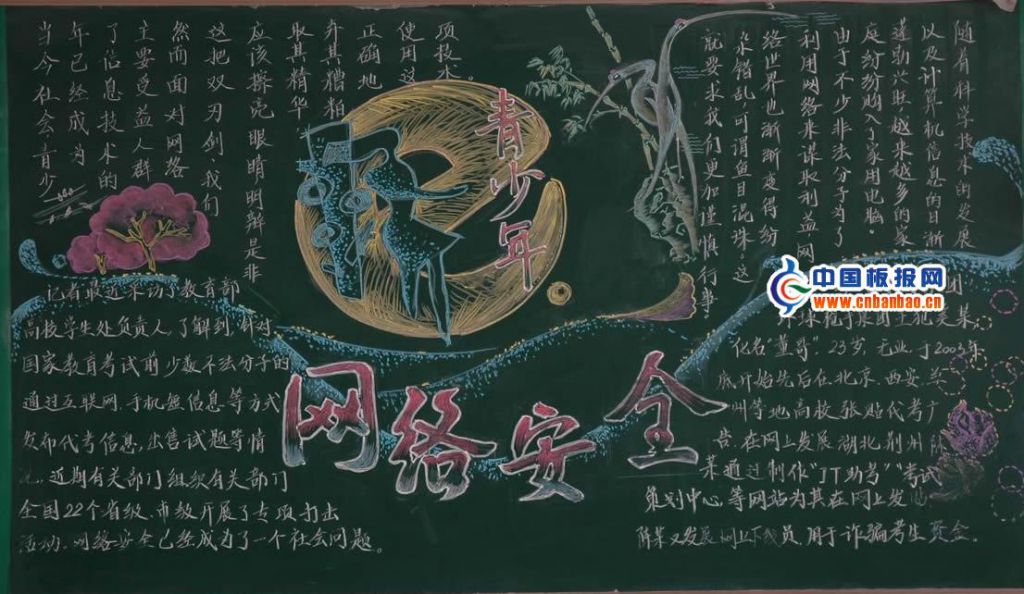 随着科学技术的发展
以及计算机信息的日渐
蓬勃兴旺,越来越多的家
庭纷纷购入了家用电脑。
由于不少非法分子为了
利用网络来谋取利益,网
络世界也渐渐变得纷
杂错乱,可谓鱼目混珠,这
就要求我们更加谨慎行事
当今社会青少
年已经成为
了信息技术的
主要受益人群
然而面对网络
这把双刃剑,我们
应该擦亮眼睛明辨是非
取其精华,
弃其糟粕
正确地
使用这
项技术。
青少年
网络安全
记者最近采访了教育部
高校学生处负责人,了解到,针对
国家教育考试前少数不法分子的
通过互联网、手机短信息等方式
发布代考信息,出售试题等情
近期有关部门组织有关部门
全国22个省级、市级开展了专项打击
活动。网络安全已经成为了一个社会问题。
团
化名"董哥",23岁,无业,于2003年
底开始先后在北京、西安、兰
州等地高校张贴代考广
告,在网上发展湖北荆州陈
某通过制作"JT助考""考试
策划中心"等网站为其在网上发
陈某又发展网上下线员,用于诈骗考生资金。
中国板报网
www.cnbanbao.cn